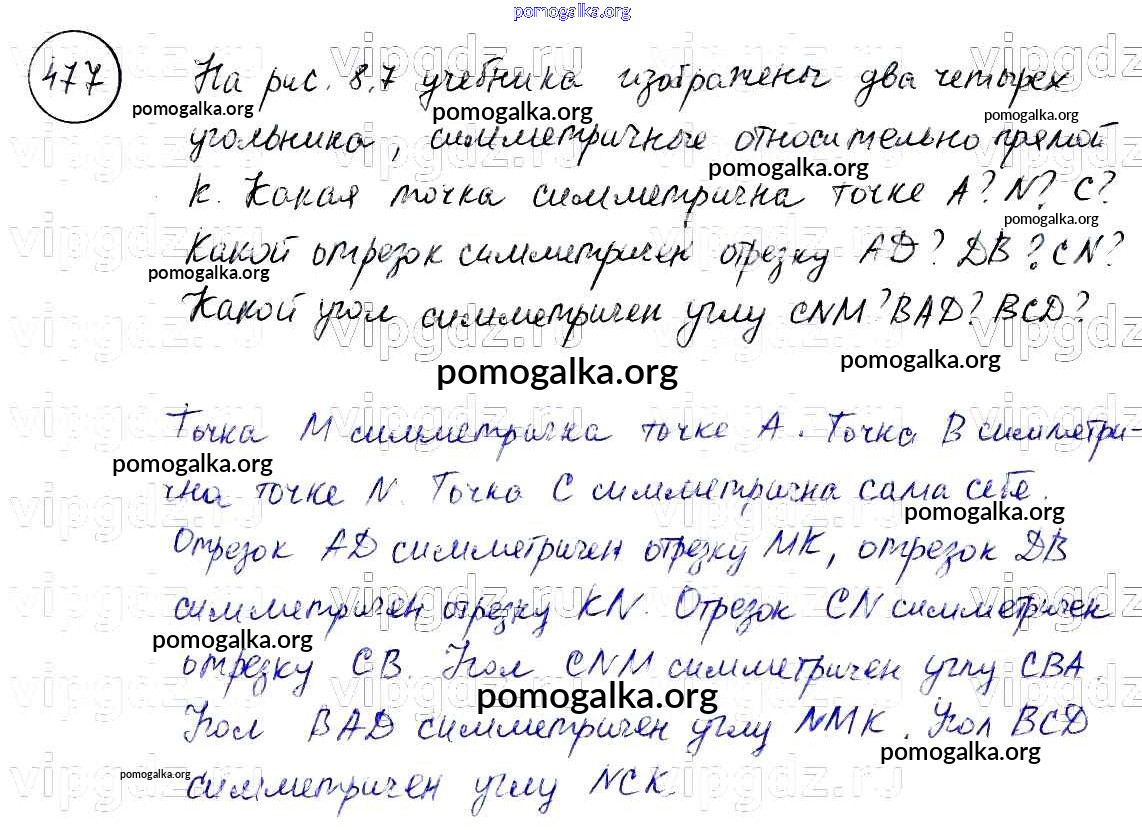 pomogalka.org
477 На рис. 8.7 учебника изображены два четырех
угольника, симметричные относительно прямой
k. Какая точка симметрична точке A? N? C?
Какой отрезок симметричен отрезку AD? DB? CN?
Какой угол симметричен углу CNM? BAD? BCD?
pomogalka.org
Точка M симметрична точке A. Точка B симметри-
чна точке N. Точка C симметрична сама себе.
Отрезок AD симметричен отрезку MK, отрезок DB
симметричен отрезку KN. Отрезок CN симметричен
отрезку CB. Угол CNM симметричен углу CBA.
Угол BAD симметричен углу NMK. Угол BCD
симметричен углу NCK.